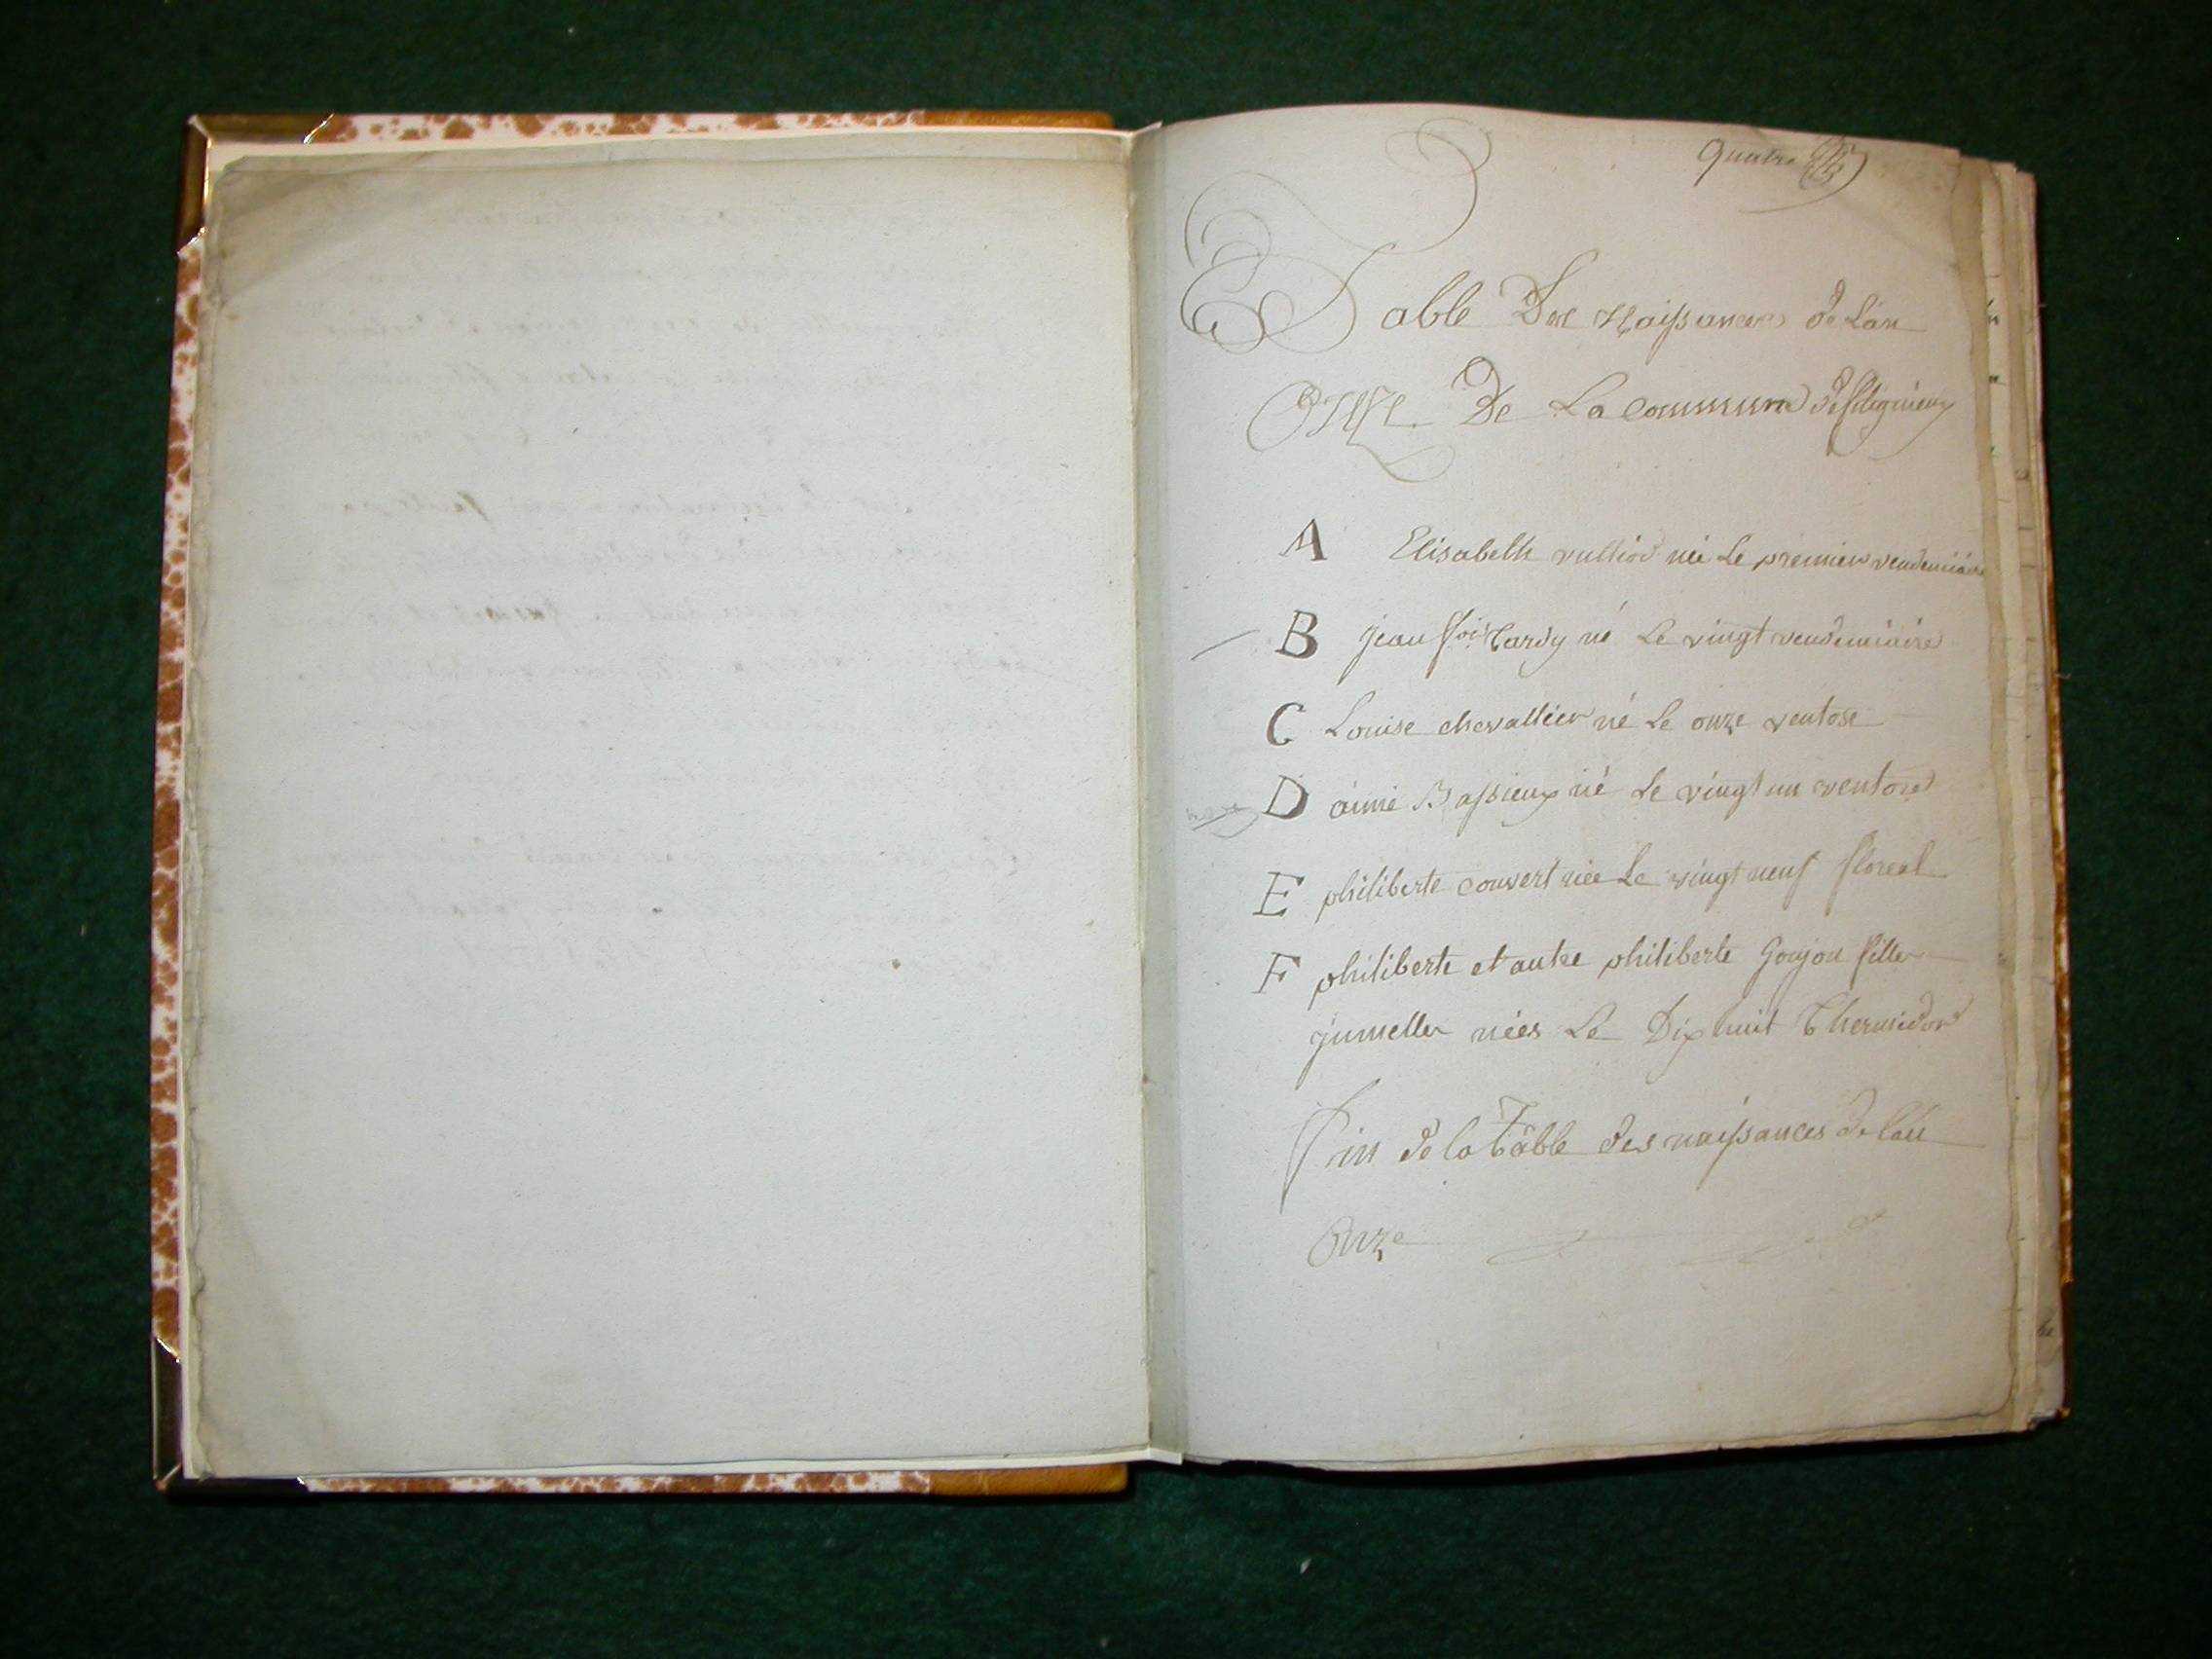 Quatre
Table Des Naissances de Lan
Onze De La Commune de
A Elisabeth vulliod née Le premier vendemiaire
B jean fois Tardy né Le vingt vendemiaire
C Louise chevallier né Le onze ventose
D aimé Bassieux né Le vingt un ventose
E philiberte couvert née Le vingt neuf floreal
F philiberte et autre philiberte Goujon filles
jumelles nées Le Dix huit Thermidor
Fin de la Table des naissances de lan
Onze